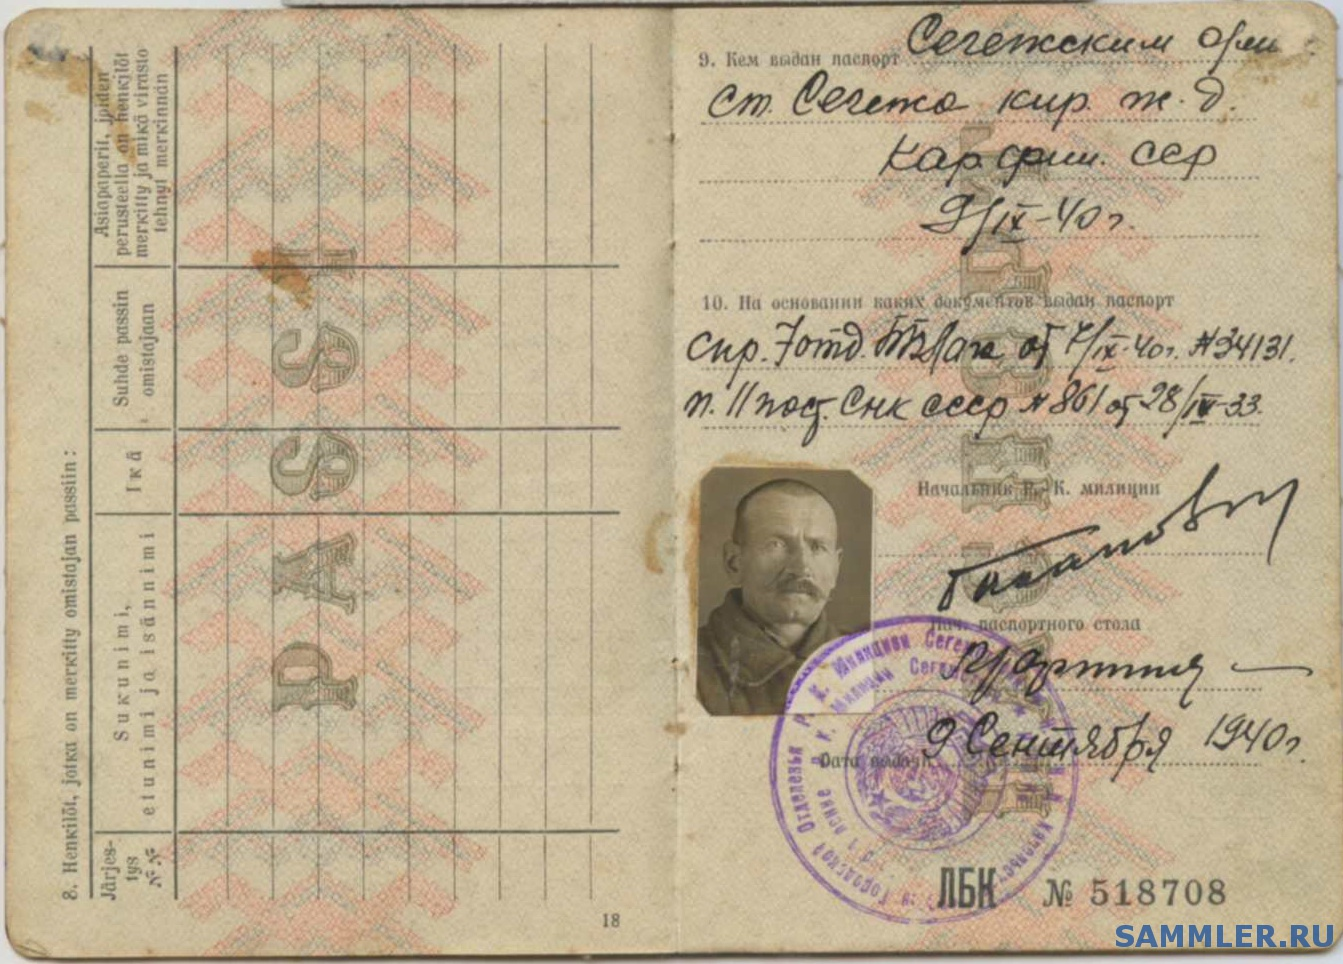 8. Henkilöt, jotka on merkitty omistajan passiin:
Järjes-
tys
№ №
Sukunimi,
etunimi ja isännimi
Ikä
Suhde passin
omistajaan
Asiapaperit, joiden
perusteella on henkilöt
merkitty ja mikä virasto
tehnyt merkinnän
PASSI
18
9. Кем выдан паспорт Сегежским
ст. Сегежа кир. ж.д.
Кар фин. сср
9/IX-40 г.
10. На основании каких документов выдан паспорт
спр. 7 отд. ББЛага от 7/IX-40г. № 34131.
п. 11 пост. СНК СССР № 861 от 28/IV-33.
Начальник Р. К. милиции
Нач. паспортного стола
Дата выдачи 9 Сентября 1940 г
ЛБК № 518708
SAMMLER.RU